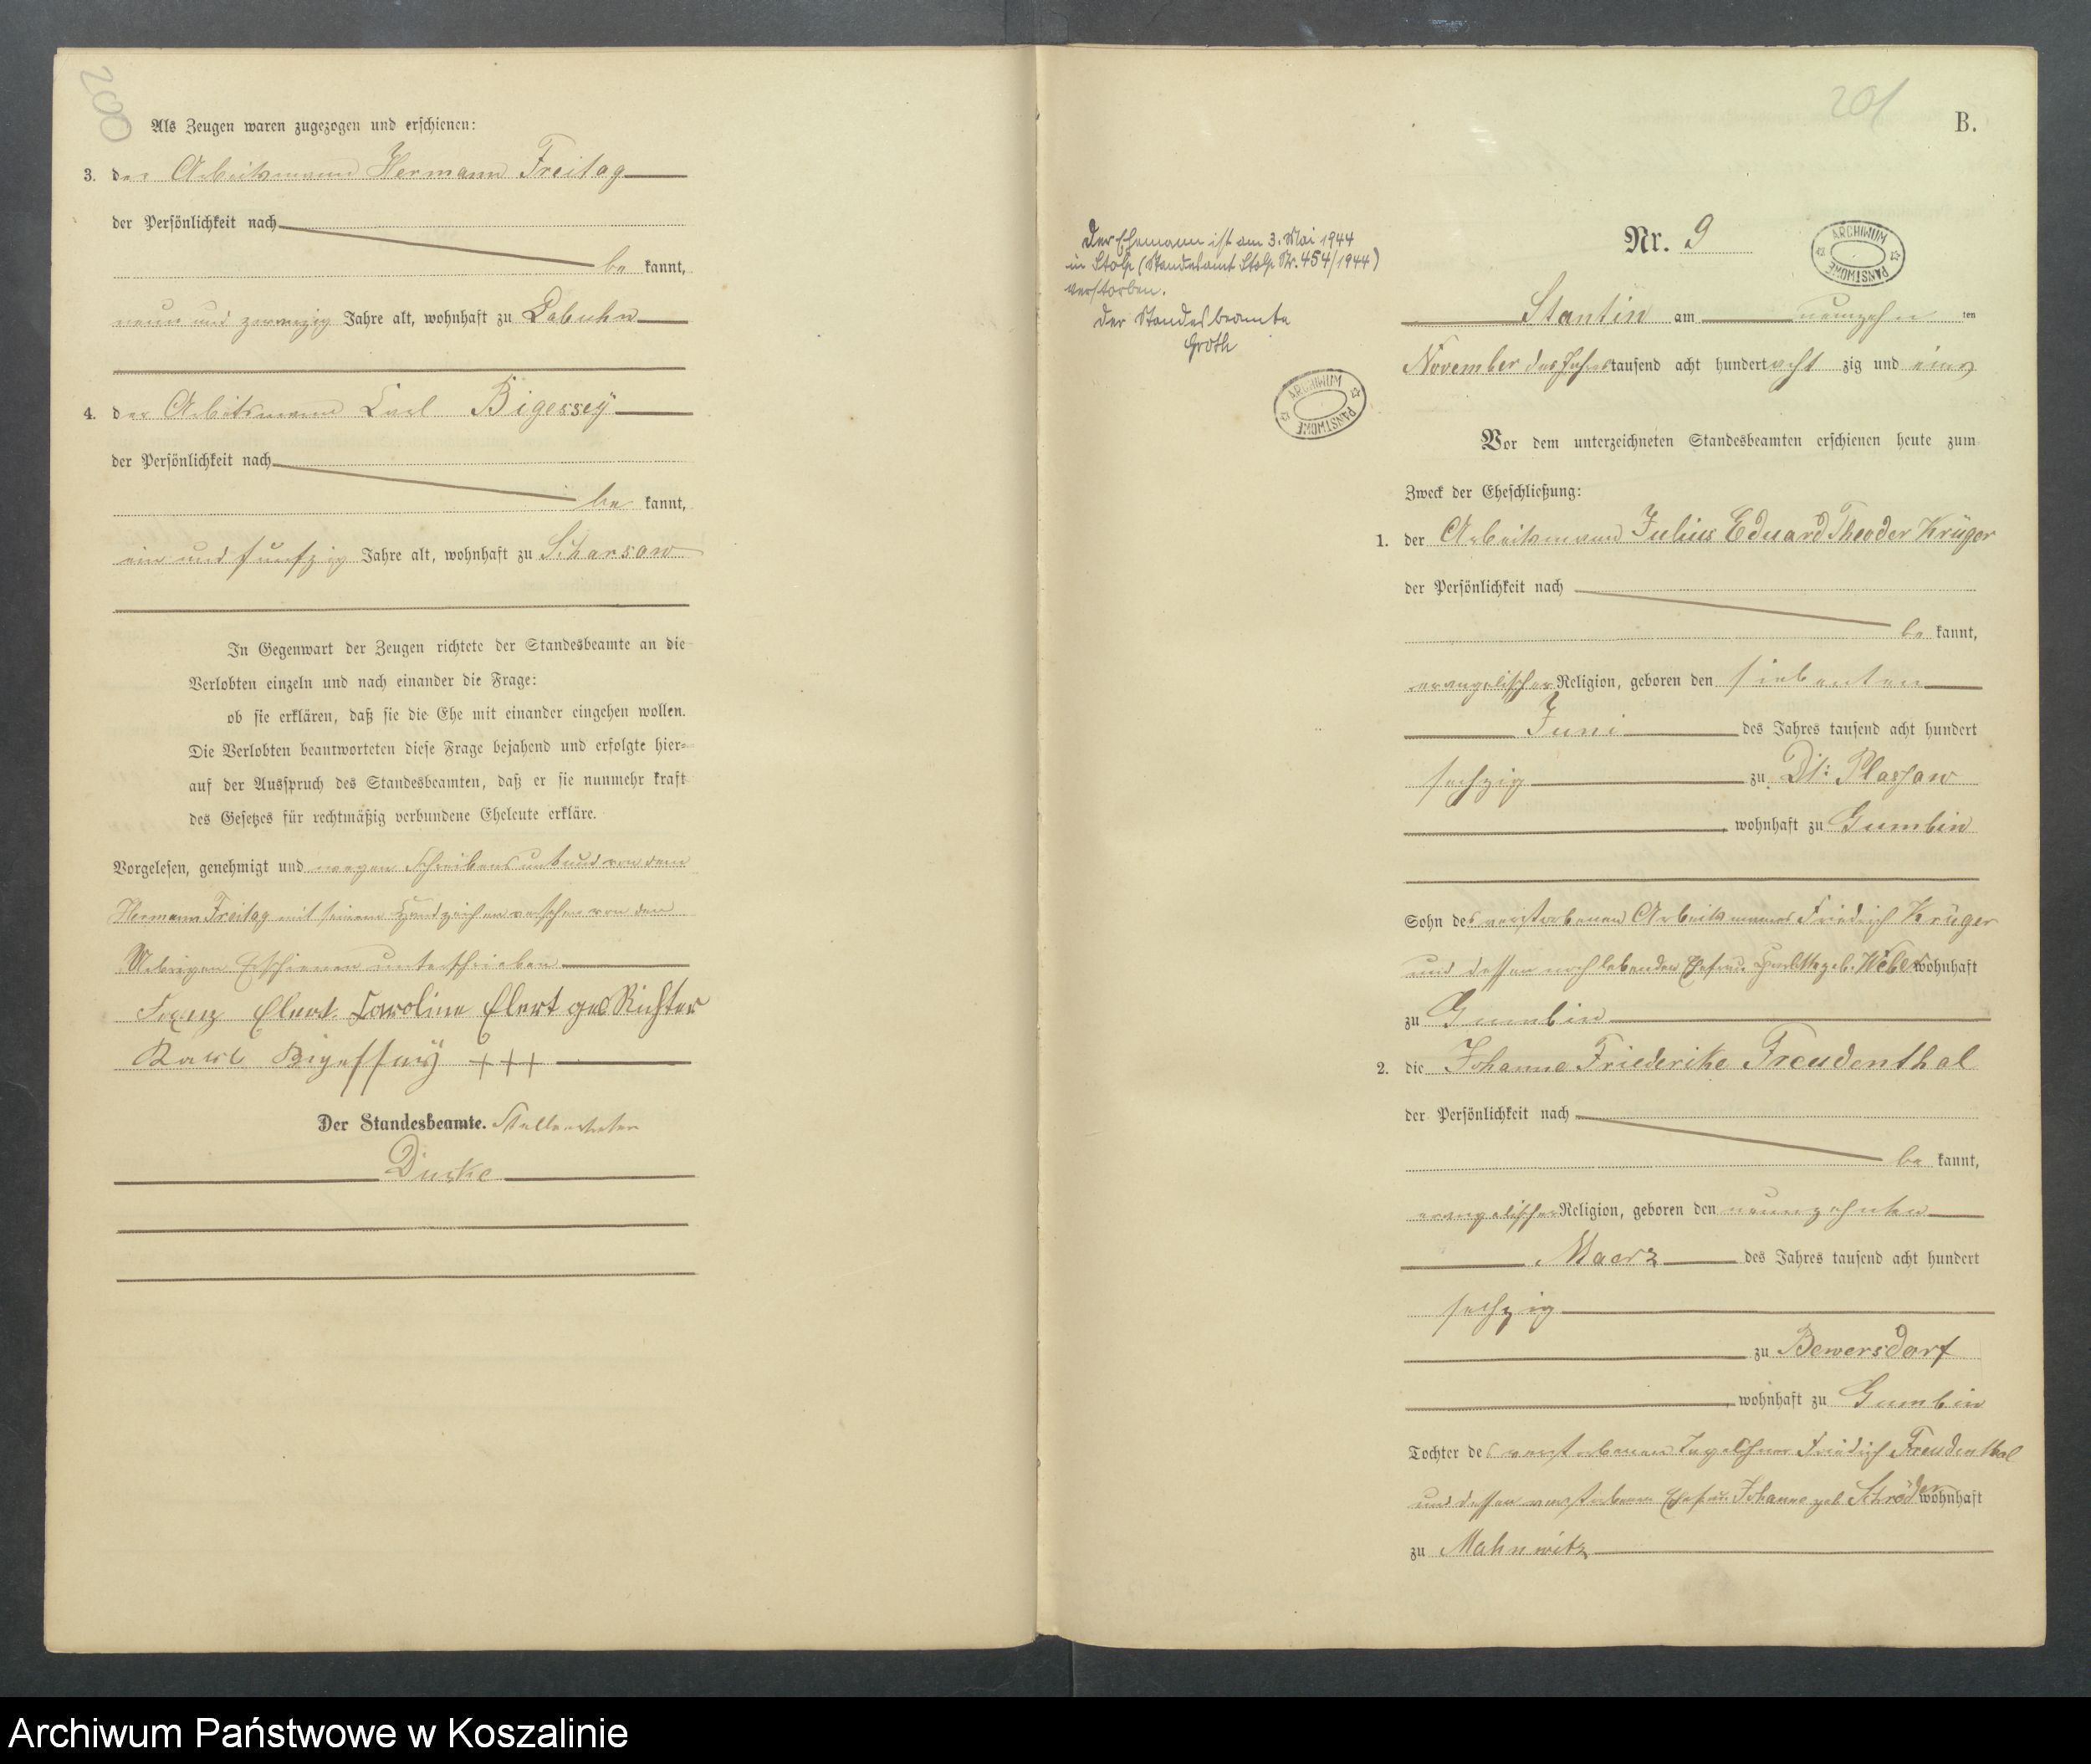 200
Als Zeugen waren zugezogen und erschienen:
3. der Arbeitsmann Hermann Freitag
der Persönlichkeit nach
be kannt,
neun und zwanzig Jahre alt, wohnhaft zu Labuhn
4. der Arbeitsmann Carl Bigessey
der Persönlichkeit nach
be kannt,
ein und fünfzig Jahre alt, wohnhaft zu Scharsow
In Gegenwart der Zeugen richtete der Standesbeamte an die
Verlobten einzeln und nach einander die Frage:
ob sie erklären, daß sie die Ehe mit einander eingehen wollen.
Die Verlobten beantworteten diese Frage bejahend und erfolgte hier-
auf der Ausspruch des Standesbeamten, daß er sie nunmehr kraft
des Gesetzes für rechtmäßig verbundene Eheleute erkläre.
Vorgelesen, genehmigt und wegen Schreibensunkund von dem
Hermann Freitag mit seinem Handzeichen versehen von den
Uebrigen Erschienen unterschrieben
Franz Elert. Caroline Elert geb Richter
Karl Bigessey +++
Der Standesbeamte. Stellvertreter
201
B.
Der Ehemann ist am 3. Mai 1944
in Stolp (Standesamt Stolp Nr. 454/1944)
verstorben.
Der Standesbeamte
Groth
ARCHIWUM PAŃSTWOWE
Nr. 9
ARCHIWUM PAŃSTWOWE
Stantin am neunzehn ten
November des Jahres tausend acht hundert acht zig und eins
Vor dem unterzeichneten Standesbeamten erschienen heute zum
Zweck der Eheschließung:
1. der Arbeitsmann Julius Eduard Theodor Krüger
der Persönlichkeit nach
be kannt,
evangelischer Religion, geboren den siebenten
Juni des Jahres tausend acht hundert
sechzig zu Dt: Plassow
wohnhaft zu Gumbin
Sohn des verstorbenen Arbeitsmannes Friedrich Krüger
und dessen noch lebenden Ehefrau geb. Weber wohnhaft
zu Gumbin
2. die Johanne Friederike Freudenthal
der Persönlichkeit nach
be kannt,
evangelischer Religion, geboren den neunzehnten
Maerz des Jahres tausend acht hundert
sechzig
zu Bewersdorf
wohnhaft zu Gumbin
Tochter des verstorbenen Tagelöhner Friedrich Freudenthal
und dessen verstorbenen Ehefrau Johanne geb Schröder wohnhaft
zu Mahnwitz
Archiwum Państwowe w Koszalinie